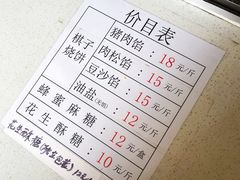 价目表
棋子烧饼
猪肉馅：18元/斤
肉松馅：15元/斤
豆沙馅：15元/斤
油盐(无馅)：12元/斤
蜂蜜麻糖：12元/盒
花生酥糖：10元/斤